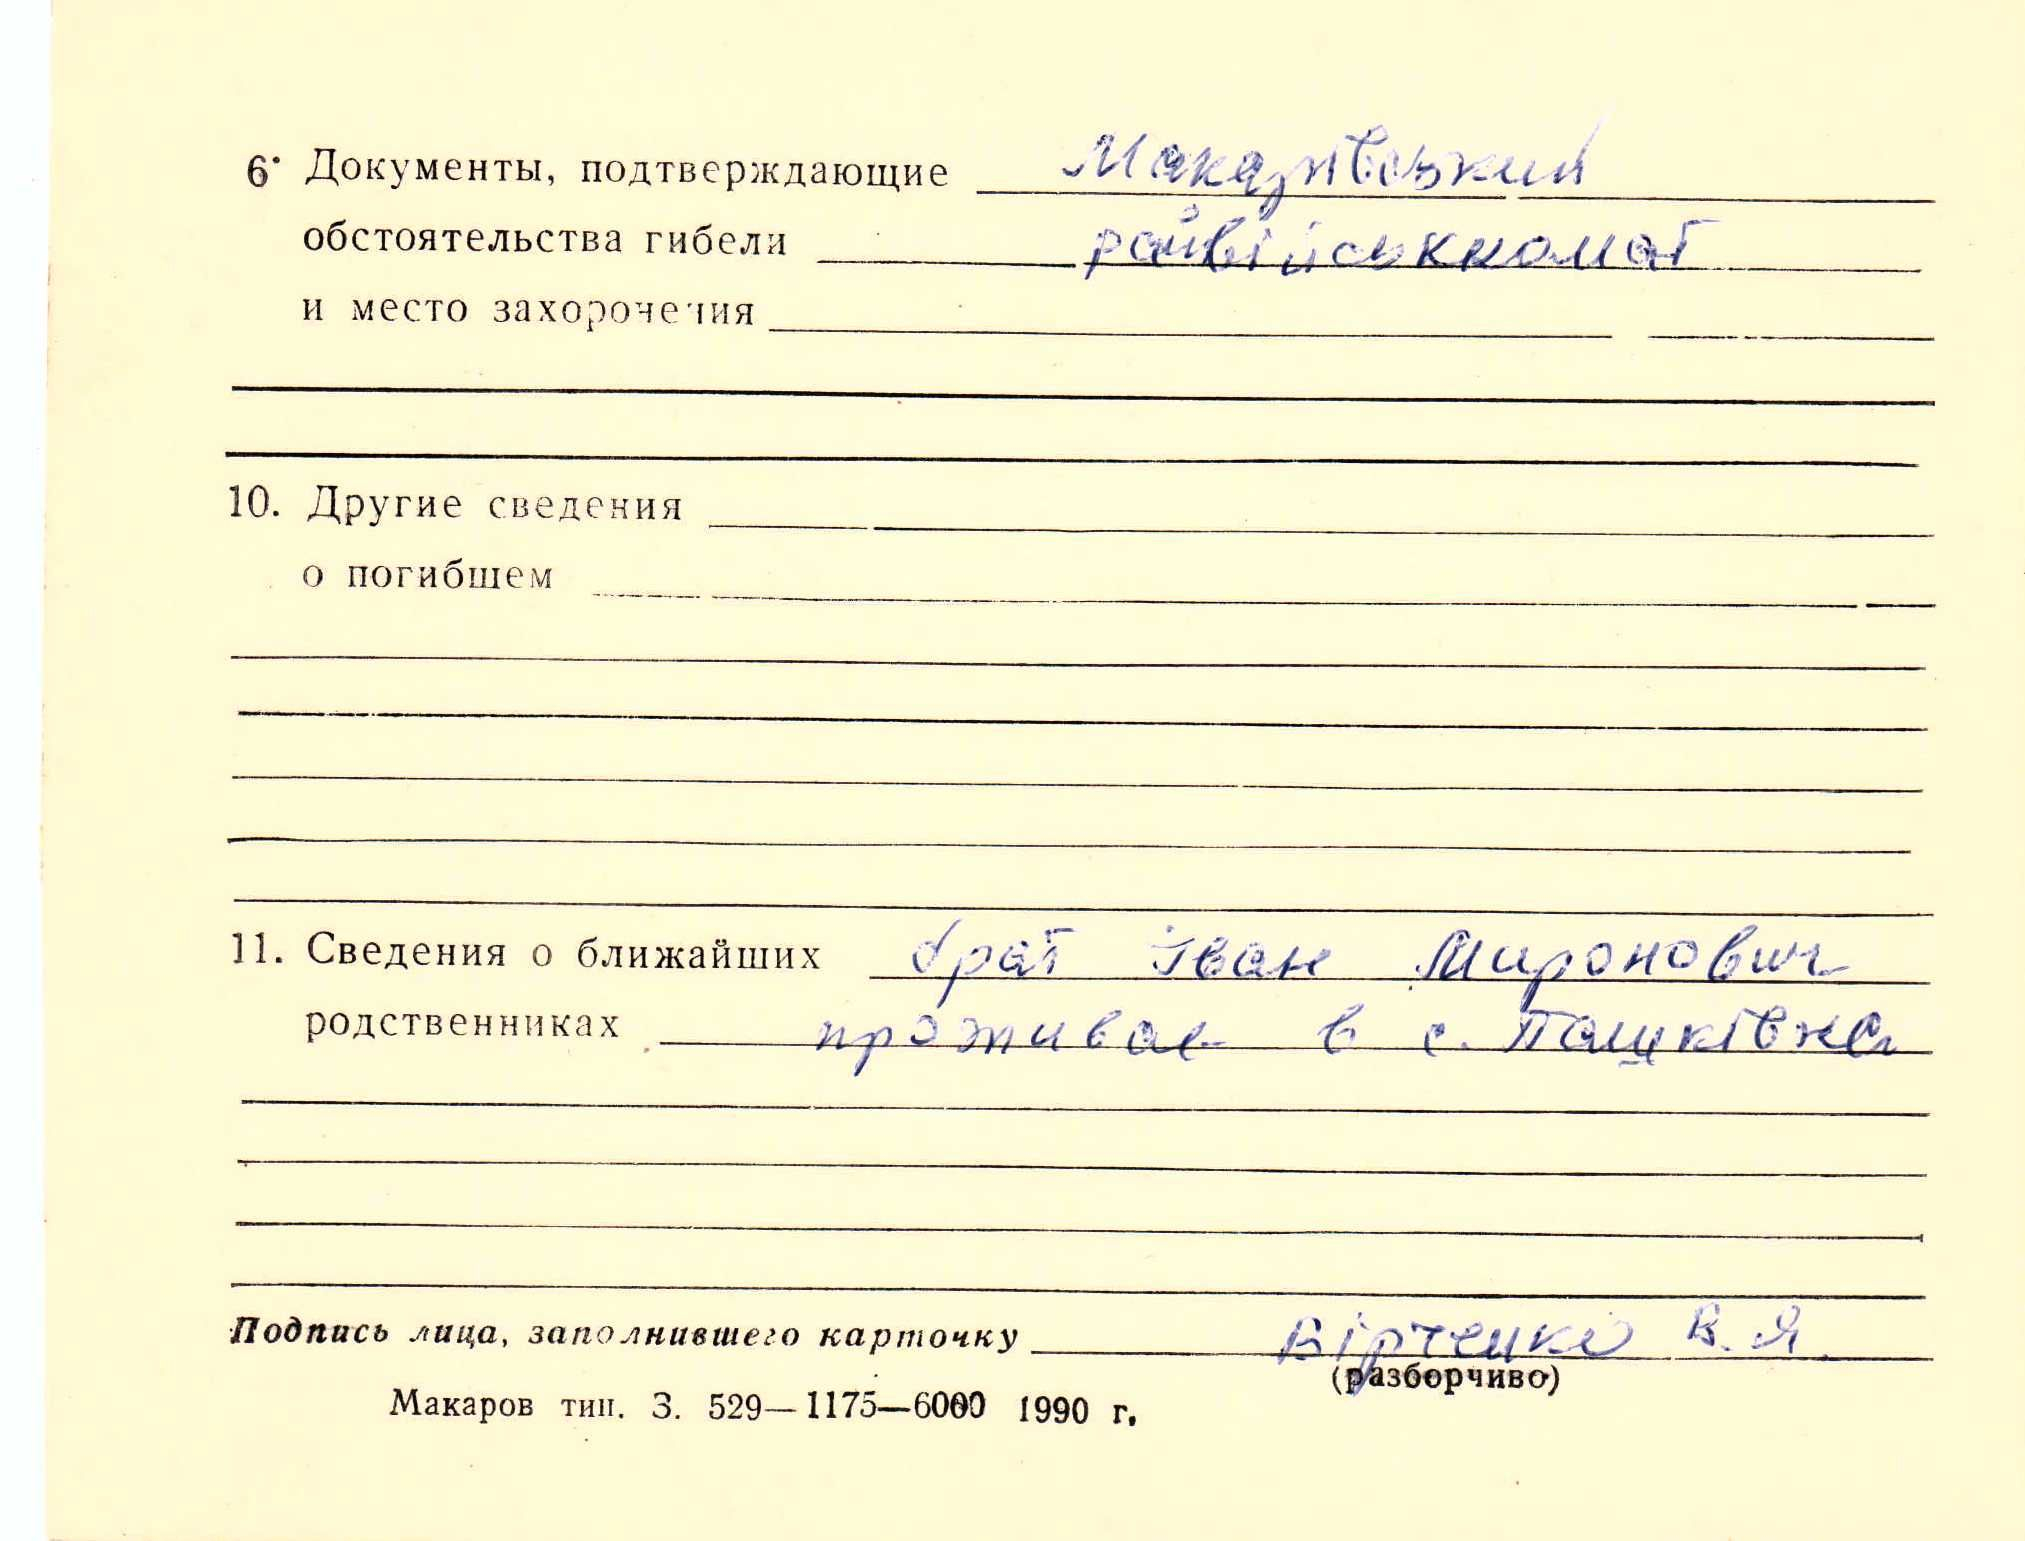 6. Документы, подтверждающие Макарівський
обстоятельства гибели райвійськкомат
и место захоронения
10. Другие сведения
о погибшем
11. Сведения о ближайших брат Іван Миронович
родственниках проживає в с. Пашківка
Подпись лица, заполнившего карточку Вірченко В. Я.
(разборчиво)
Макаров тип. З. 529—1175—6000 1990 г.